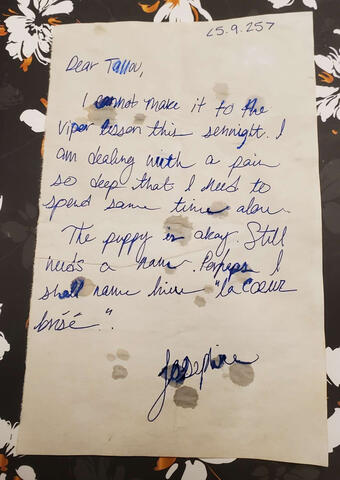 25.9.257
Dear Tallov,
I cannot make it to the
Viper lesson this sennight. I
am dealing with a pain
so deep that I need to
spend some time alone.
The puppy is okay. Still
needs a name. Perhaps I
shall name him "la coeur
brisé".
Josephine